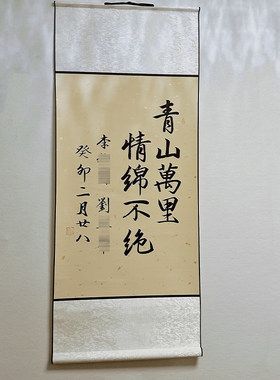 青山萬里
情綿不绝
李 劉
癸卯二月廿八